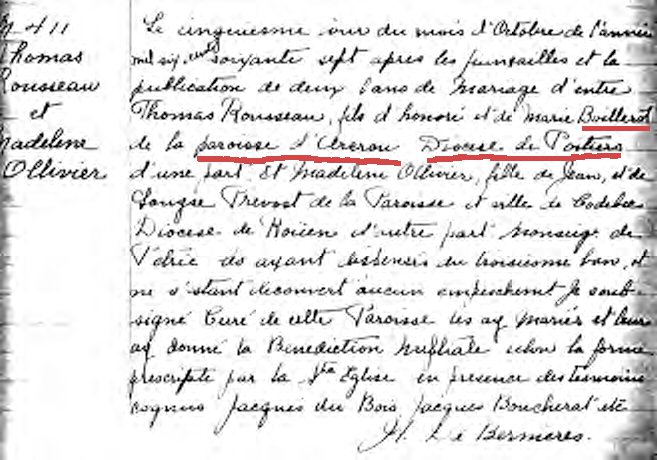 M 411
Thomas
Rousseau
et
Madelene
Ollivier
Le cinquiesme jour du mois d'Octobre de l'année
mil six cents soixante sept apres les fiansailles et la
publication de deux bans de Mariage d'entre
Thomas Rousseau, fils d'honoré et de Marie Boillerot
de la paroisse d'Areron Diocese de Poitiers
d'une part. Et Madelene Ollivier, fille de Jean, et de
Louyse Prevost de la Paroisse et ville de Codebec
Diocese de Roüen d'autre part Monsieur de
ayant dispensés du troisiesme ban, et
ne s'estant decouvert aucun empeschement Je soub-
signé Curé de cette Paroisse les ay Mariés et leur
ay donné la Benediction Nuptiale selon la forme
prescripte par la Ste Eglise en presence des tesmoins
cognus Jacques du Bois, Jacques Boucherat etc
H. De Bernieres.